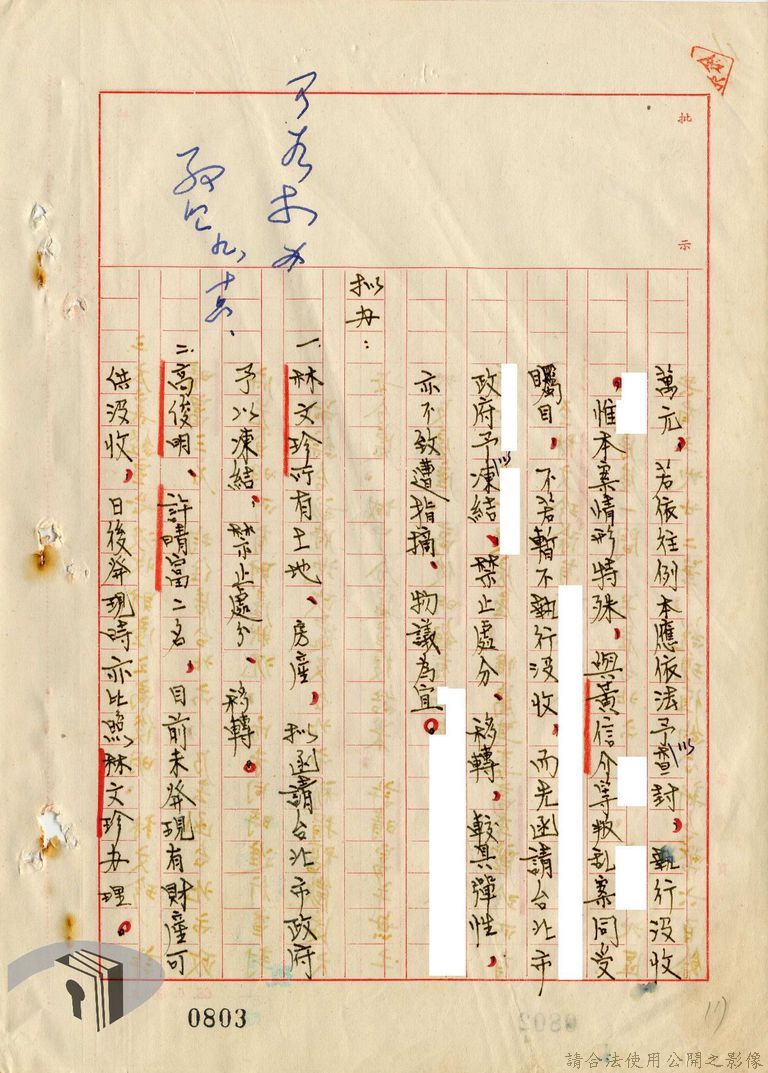 批示
可如擬办
萬元，若依往例本應依法予以查封，執行沒收
，惟本案情形特殊，與黃信介等叛亂案同受
矚目，不若暫不執行沒收，而先函請台北市
政府予以凍結、禁止處分、移轉，較具彈性，
亦不致遭指摘、物議為宜。
拟办：
一、林文珍所有土地、房產，拟函請台北市政府
予以凍結，禁止處分、移轉。
二、高俊明、許晴富二名，目前未發現有財產可
供沒收，日後發現時亦比照林文珍办理。
0803
請合法使用公開之影像